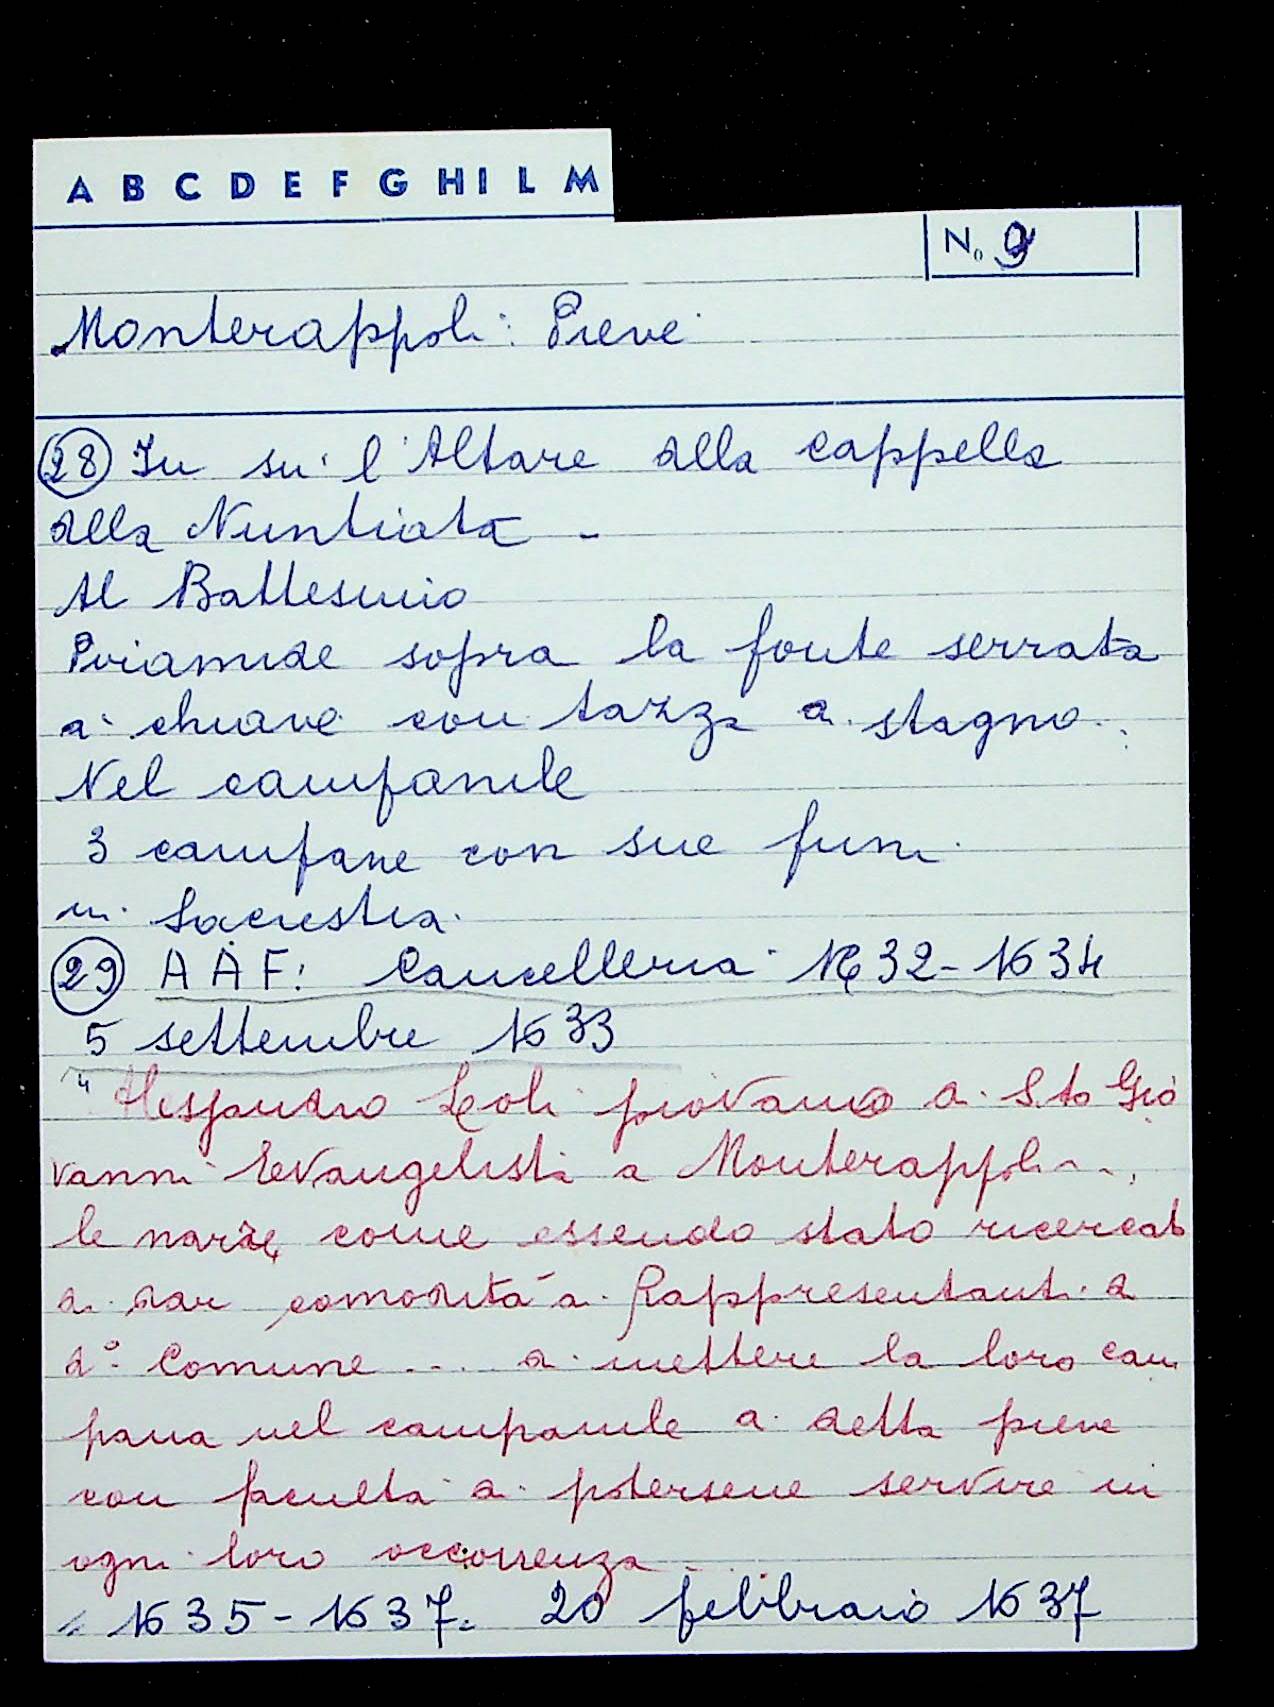 A B C D E F G H I L M
No 9
Monterappoli: Pieve
28 In su l'Altare della cappella
della Nuntiata -
Al Battesimo
Piramide sopra la fonte serrata
a chiave con tazza di stagno.
Nel campanile
3 campane con sue funi
in Sacrestia.
29 A A F: Cancelleria 1632-1634
5 settembre 1633
" Alessandro Leoli piovano di S.to Gio
vanni Evangelista a Monterappoli...
le narra come essendo stato ricercato
di dar comodità a Rappresentanti di
d.o Comune .... di mettere la loro cam
pana nel campanile di detta pieve
con faculta di potersene servire in
ogni loro occorrenza...
" 1635-1637. 20 febbraio 1637